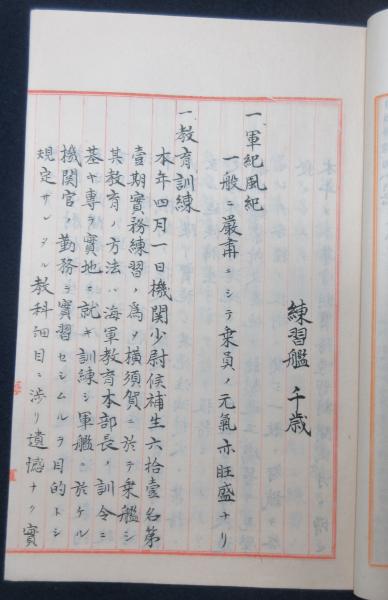 練習艦 千歳
一、軍紀風紀
一般ニ嚴肅ニシテ乗員ノ元氣亦旺盛ナリ
一、教育訓練
本年四月一日機関少尉候補生六拾壹名第
壹期實務練習ノ為メ横須賀ニ於テ乗艦シ
其教育ノ方法ハ海軍教育本部長ノ訓令ニ
基キ專ラ實地ニ就キ訓練シ軍艦ニ於ケル
機関官ノ勤務ヲ實習セシムルヲ目的トシ
規定サレタル教科細目ニ渉リ遺憾ナク實